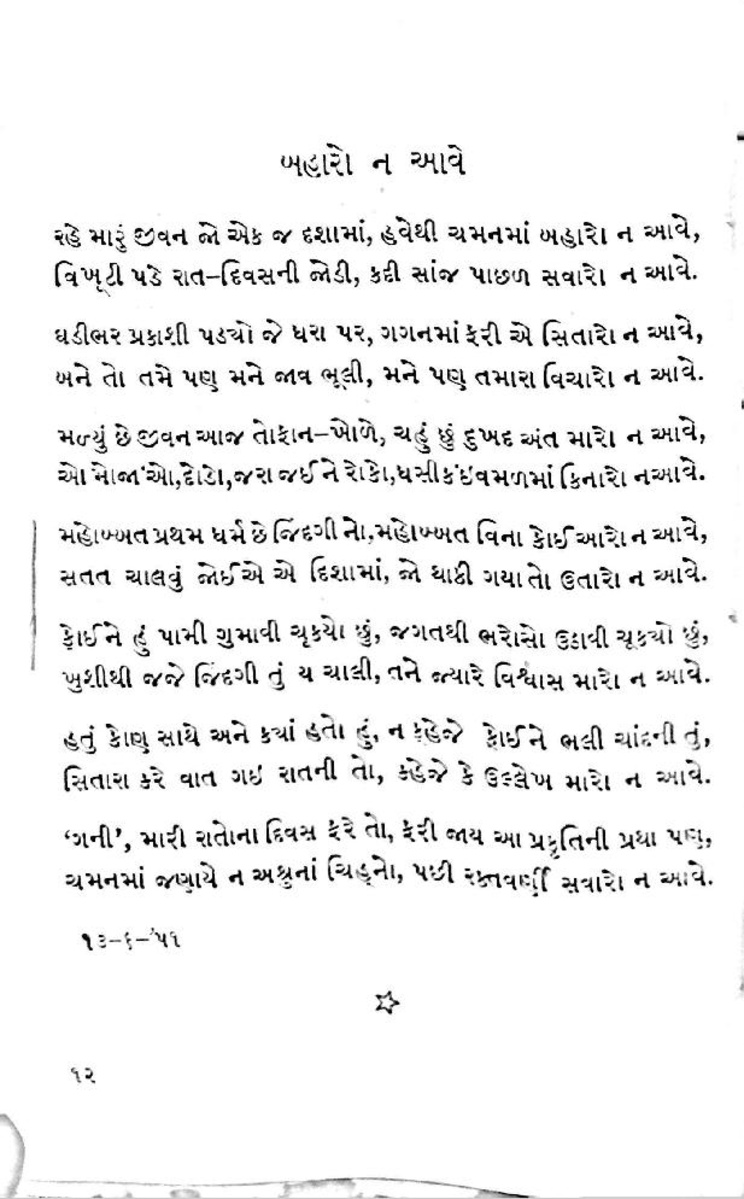 બહારો ન આવે
રહે મારું જીવન જો એક જ દશામાં, હવેથી ચમનમાં બહારો ન આવે,
વિખૂટી પડે રાત–દિવસની જોડી, કદી સાંજ પાછળ સવારો ન આવે.
ઘડીભર પ્રકાશી પડ્યો જે ધરા પર, ગગનમાં ફરી એ સિતારો ન આવે,
બને તો તમે પણ મને જાવ ભૂલી, મને પણ તમારા વિચારો ન આવે.
મળ્યું છે જીવન આજ તોફાન–ખોળે, ચહું છું દુખદ અંત મારો ન આવે,
ઓ મોજાંઓ, દોડો, જરા જઈને રોકો, ધસી કંઈ વમળમાં કિનારો ન આવે.
મહોબ્બત પ્રથમ ધર્મ છે જિંદગીનો, મહોબ્બત વિના કોઈ આરો ન આવે,
સતત ચાલવું જોઈએ એ દિશામાં, જો થાકી ગયા તો ઉતારો ન આવે.
કોઈને હું પામી ગુમાવી ચૂક્યો છું, જગતથી ભરોસો ઉઠાવી ચૂક્યો છું,
ખુશીથી જજે જિંદગી તું ય ચાલી, તને જ્યારે વિશ્વાસ મારો ન આવે.
હતું કોણ સાથે અને કયાં હતો હું, ન કહેજે કોઈને ભલી ચાંદની તું,
સિતારા કરે વાત ગઇ રાતની તો, કહેજે કે ઉલ્લેખ મારો ન આવે.
‘ગની’, મારી રાતોના દિવસ ફરે તો, ફરી જાય આ પ્રકૃતિની પ્રથા પણ,
ચમનમાં જણાયે ન અશ્રુનાં ચિહ્નો, પછી રક્તવર્ણી સવારો ન આવે.
૧૩–૬–'૫૧
૧૨